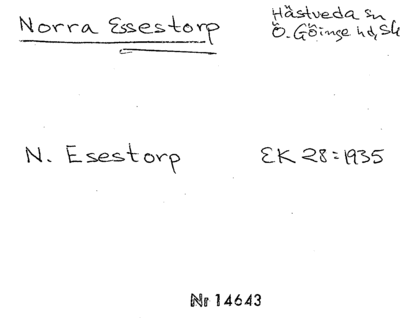 Norra Essestorp
Hästveda sn
Ö. Göinge hd, Sk
N. Esestorp
EK 28=1935
Nr 14643